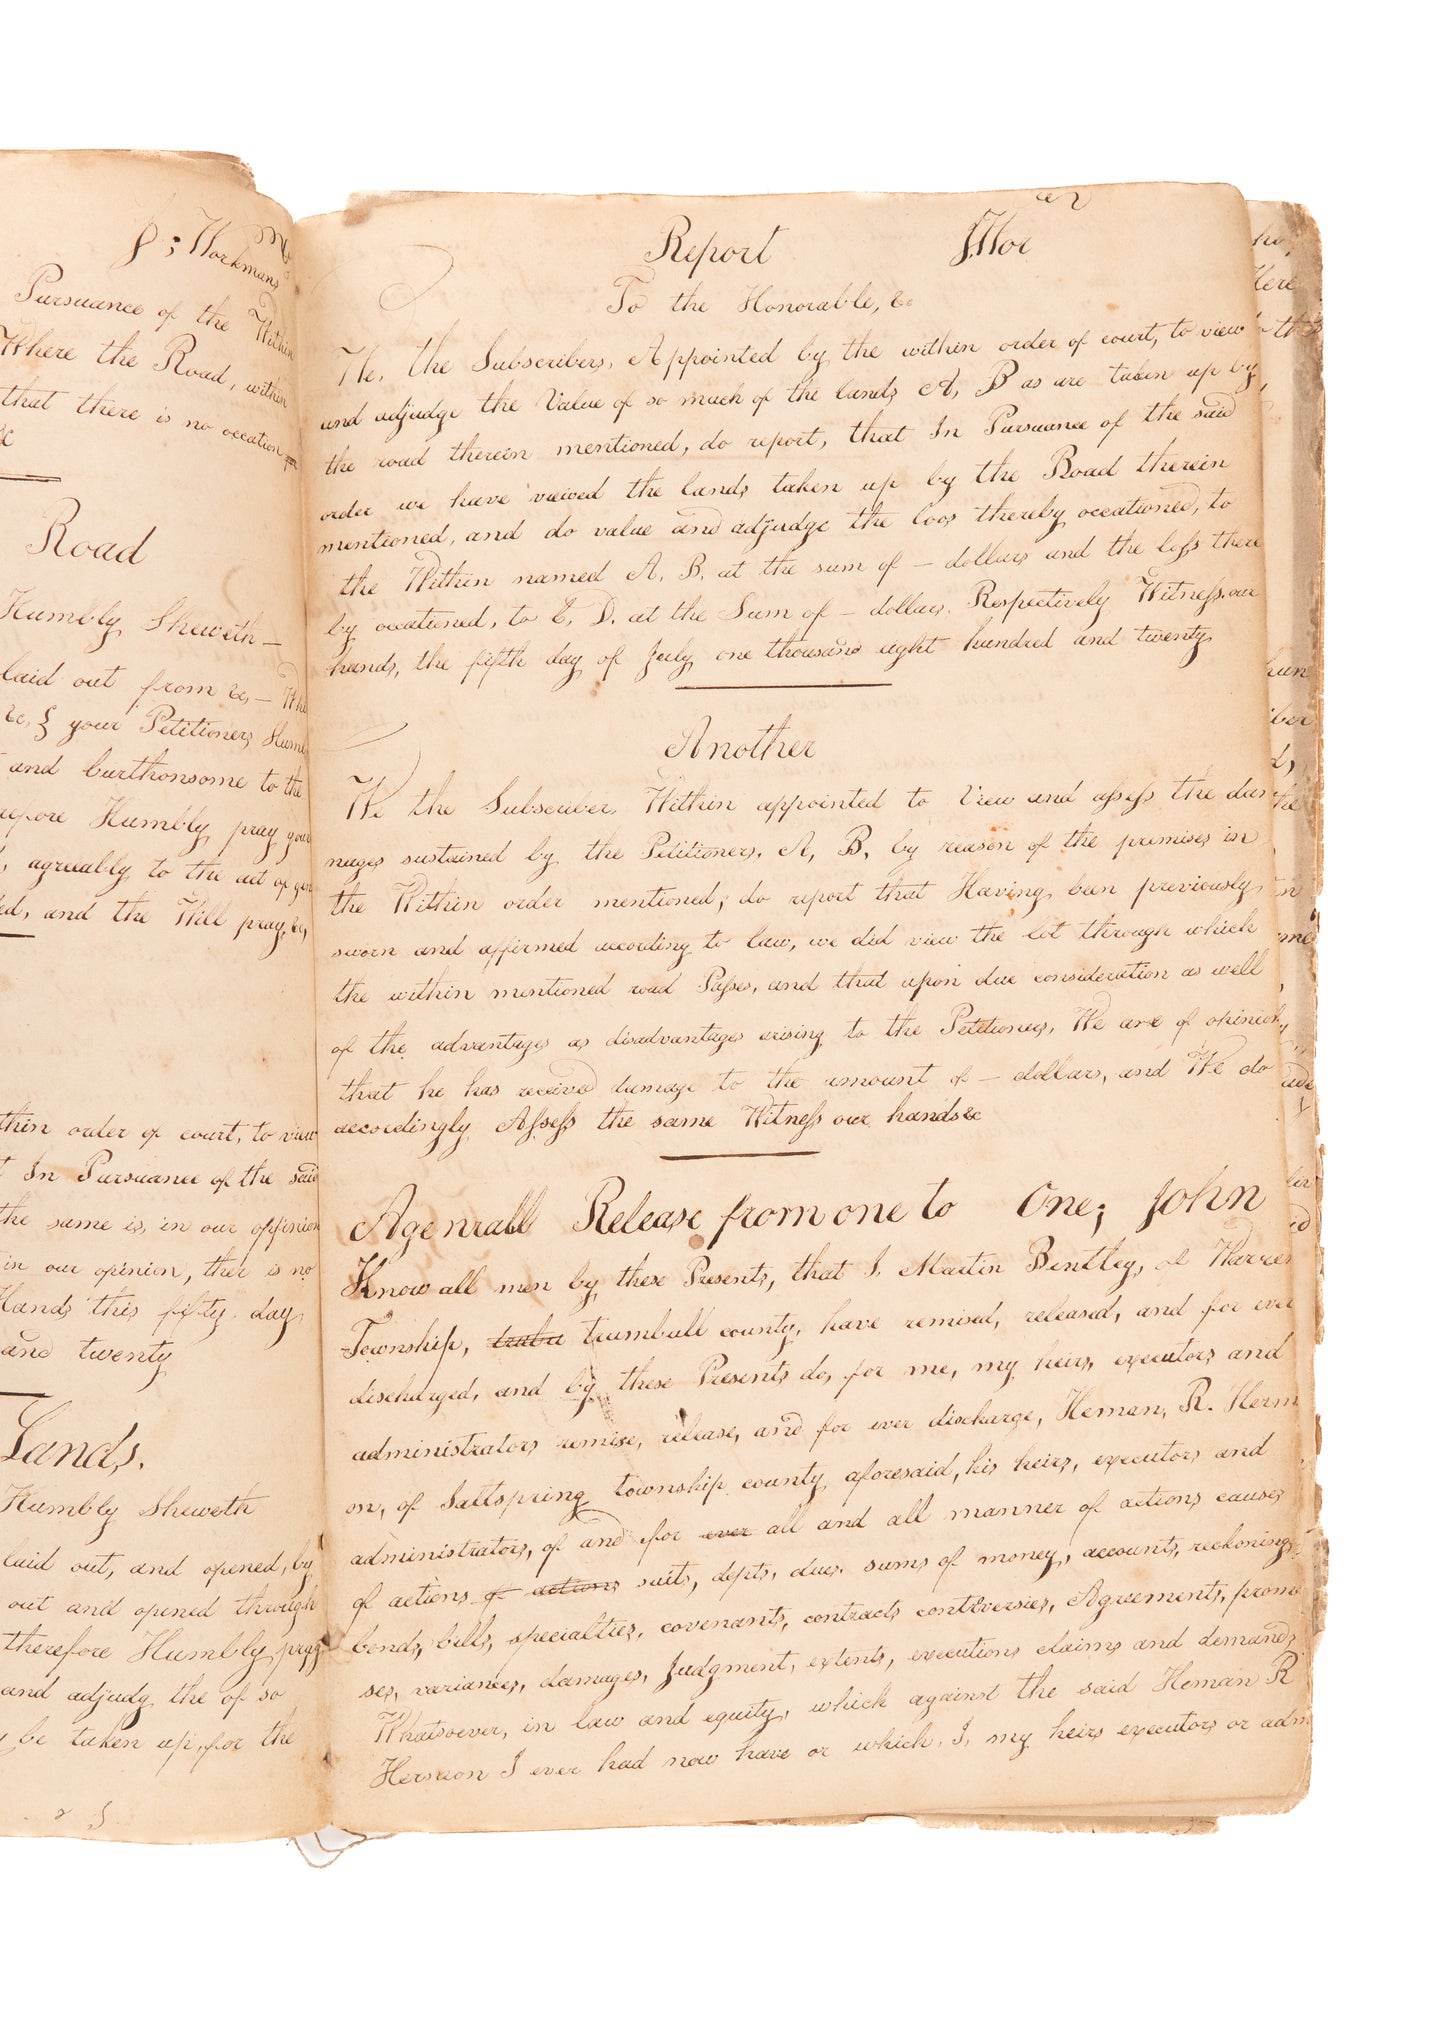 J; Workman,
Pursuance of the Within
Where the Road, within
that there is no occation for
&c
Road
Humbly Sheweth —
laid out from &c, — The
&c, § your Petitioners Humb
and burthonsome to the
refore Humbly pray your
, agreeably to the act of gen
ed, and the Will pray, &c,
thin order of court, to view
t In Pursuance of the said
the same is, in our oppinion
in our opinion, ther is no
Hands this fifty day
and twenty
Lands.
Humbly Sheweth
laid out, and opened, by
out and opened through
therefore Humbly pray
and adjudg the of so
y be taken up, for the
Report
To the Honorable, &c
We, the Subscribers, Appointed by the within order of court, to view
and adjudge the Value of so much of the lands A, B as are taken up by
the road therein mentioned, do report, that In Pursuance of the said
order we have veiwed the lands taken up by the Road therein
mentioned, and do value and adjudge the loos thereby occationed, to
the Within named A. B. at the sum of — dollars and the loss there
by occationed, to C, D. at the Sum of — dollars. Respectively Witness. our
hands, the fifth day of July one thousand eight hundred and twenty
Another
We the Subscriber, Within appointed to View and assess the dam
mages sustained by the Petitioners, A, B, by reason of the premises in
the Within order mentioned; do report that Having been previously
sworn and affirmed according to law, we did view the lot through which
the within mentioned road Passes, and that upon due consideration as well
of the advantages as disadvantages arising to the Petetioners, We are of opinion
that he has received damage to the amount of — dollars, and We do
accordingly Assess the same Witness our hands &c
Agenrall Release from one to One; John
Know all men by these Presents, that I, Martin Bentley, of Warren
Township, trubu trumbull county, have remised, released, and for ever
discharged, and by these Presents do, for me, my heirs, executors and
administrators remise, release, and for ever discharge, Heman, R. Herm
on, of Saltspring township county aforesaid, his heirs, executors and
administrators, of and for ever all and all manner of actions causes
of actions of actions suits, depts, dues. sums of money, accounts, reckonings
bonds, bills, specialties, covenants, contracts controversies, Agreements, promi
ses, variances, damages, Judgment, extents, executions claims and demands,
Whatsoever, in law and equity, which against the said Heman R
Hermon I ever had now have or which, I, my heirs executors or adm